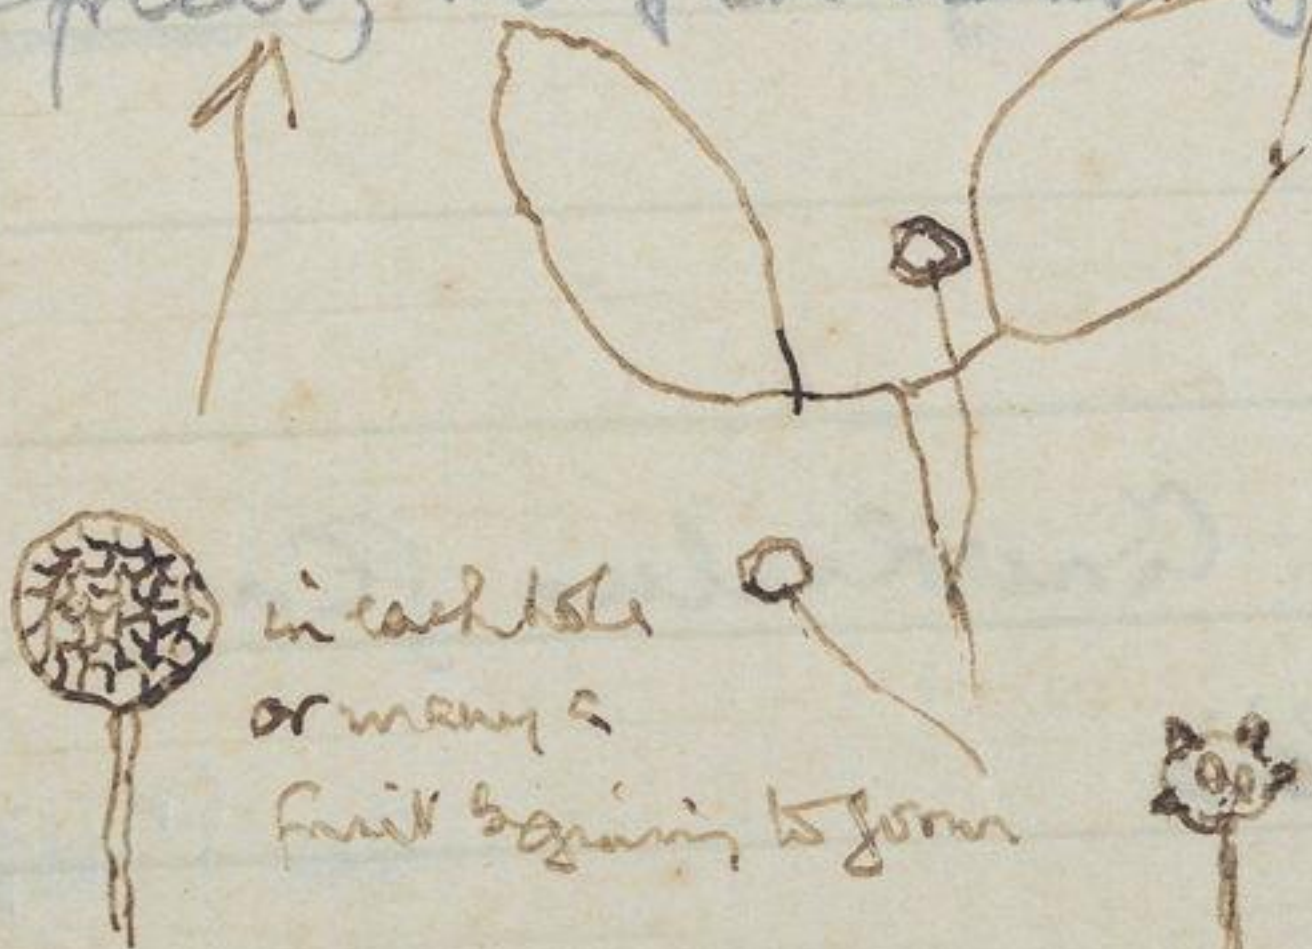 in each hole
or many a
fruit begining to form